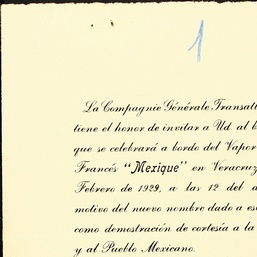 1
La Compagnie Générale Transatl
tiene el honor de invitar a Ud. al b
que se celebrará a bordo del Vapor
Francés "Mexique" en Veracruz
Febrero de 1929, a las 12 del d
motivo del nuevo nombre dado a es
como demostración de cortesía a la
y al Pueblo Mexicano.